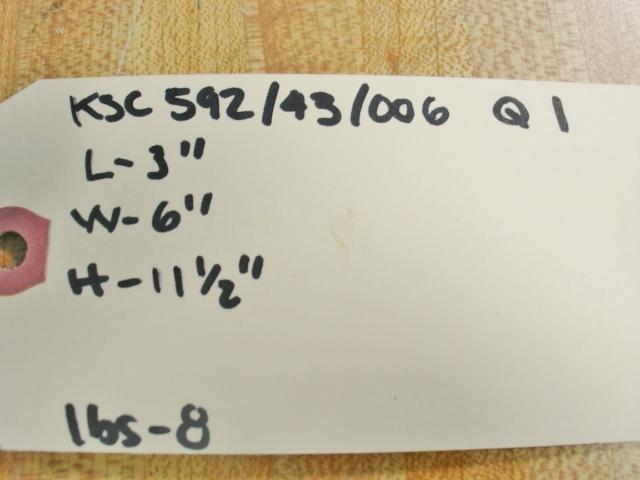 KSC 592/43/006 Q 1
L-3"
W-6"
H-11 1/2"
lbs-8